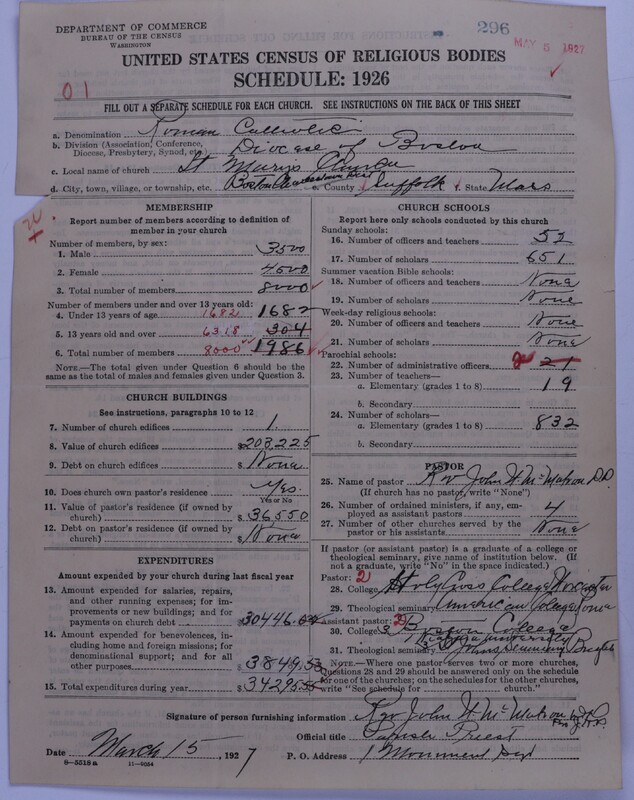 DEPARTMENT OF COMMERCE
BUREAU OF THE CENSUS
WASHINGTON
296
MAY 5 1927
UNITED STATES CENSUS OF RELIGIOUS BODIES
SCHEDULE: 1926
01
FILL OUT A SEPARATE SCHEDULE FOR EACH CHURCH. SEE INSTRUCTIONS ON THE BACK OF THIS SHEET
a. Denomination Roman Catholic
b. Division (Association, Conference, Diocese, Presbytery, Synod, etc.) Diocese of Boston
c. Local name of church St Mary's Church
d. City, town, village, or township, etc. Boston Charlestown Dist e. County Suffolk f. State Mass
MEMBERSHIP
Report number of members according to definition of
member in your church
Number of members, by sex:
1. Male 3500
2. Female 4500
3. Total number of members 8000
Number of members under and over 13 years old:
4. Under 13 years of age 1682 1682
5. 13 years old and over 6318 304
6. Total number of members 8000 1986
NOTE.—The total given under Question 6 should be
the same as the total of males and females given under Question 3.
CHURCH BUILDINGS
See instructions, paragraphs 10 to 12
7. Number of church edifices 1.
8. Value of church edifices $ 203,225
9. Debt on church edifices $ None
10. Does church own pastor's residence Yes.
Yes or No
11. Value of pastor's residence (if owned by
church) $ 36550
12. Debt on pastor's residence (if owned by
church) $ None
EXPENDITURES
Amount expended by your church during last fiscal year
13. Amount expended for salaries, repairs,
and other running expenses; for im-
provements or new buildings; and for
payments on church debt $ 30446.
14. Amount expended for benevolences,
including home and foreign missions; for
denominational support; and for all
other purposes $ 3849.53
15. Total expenditures during year $ 34295.55
CHURCH SCHOOLS
Report here only schools conducted by this church
Sunday schools:
16. Number of officers and teachers 52
17. Number of scholars 651
Summer vacation Bible schools:
18. Number of officers and teachers None
19. Number of scholars None
Week-day religious schools:
20. Number of officers and teachers None
21. Number of scholars None
Parochial schools:
22. Number of administrative officers 21
23. Number of teachers—
a. Elementary (grades 1 to 8) 19
b. Secondary
24. Number of scholars—
a. Elementary (grades 1 to 8) 832
b. Secondary
PASTOR
25. Name of pastor Rev John W. McMahon D.D.
(If church has no pastor, write "None")
26. Number of ordained ministers, if any, em-
ployed as assistant pastors 4
27. Number of other churches served by the
pastor or his assistants None
If pastor (or assistant pastor) is a graduate of a college or
theological seminary, give name of institution below. (If
not a graduate, write "No" in the space indicated.)
Pastor: 2
28. College Holy Cross College Worcester
29. Theological seminary American College Rome
Assistant pastor: 2
30. College 3 Boston College
Niagara University
31. Theological seminary St Johns Seminary Brighton
NOTE.—Where one pastor serves two or more churches,
Questions 28 and 29 should be answered only on the schedule
for one of the churches; on the schedules for the other churches,
write "See schedule for church."
Signature of person furnishing information Rev John W. McMahon
Official title Parish Priest
Date March 15, 1927
P. O. Address 1 Monument Sq
8—5518a 11—9554